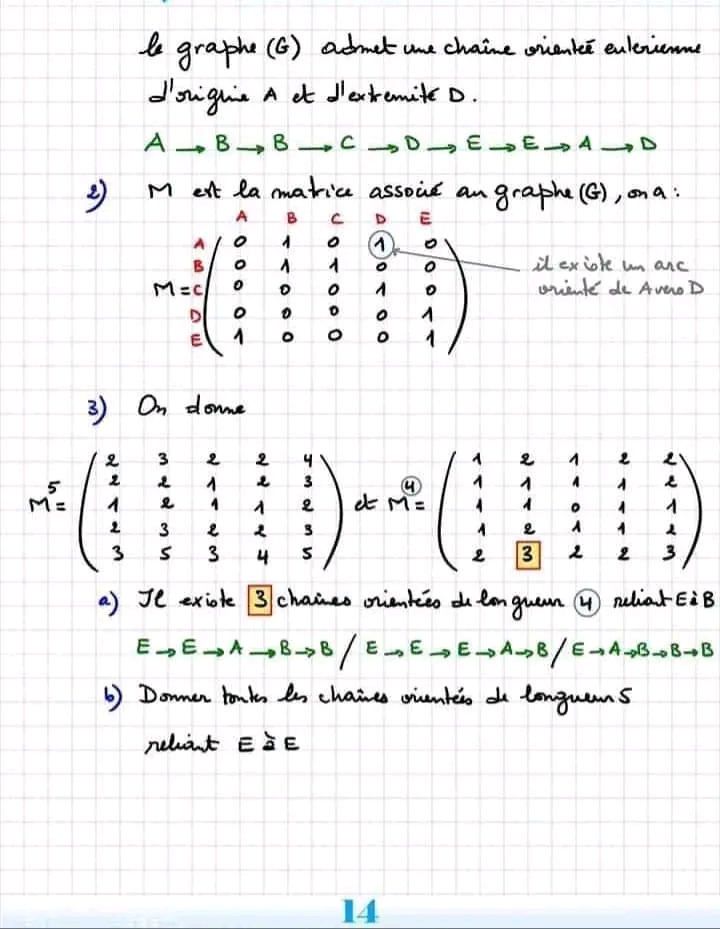 le graphe (G) admet une chaîne orienté eulerienne
d'origine A et d'extremité D.
A → B → B → C → D → E → E → A → D
2) M est la matrice associé au graphe (G), on a :
A B C D E
A 0 1 0 1 0
B 0 1 1 0 0
M = C 0 0 0 1 0
D 0 0 0 0 1
E 1 0 0 0 1
il existe un arc
orienté de A vers D
3) On donne
M⁵ =
2 3 2 2 4
2 2 1 2 3
1 2 1 1 2
2 3 2 2 3
3 5 3 4 5
et M⁴ =
1 2 1 2 2
1 1 1 1 2
1 1 0 1 1
1 2 1 1 2
2 3 2 2 3
a) Il existe 3 chaînes orientées de longueur 4 reliant E à B
E → E → A → B → B / E → E → E → A → B / E → A → B → B → B
b) Donner toutes les chaînes orientées de longueur 5
reliant E à E
14